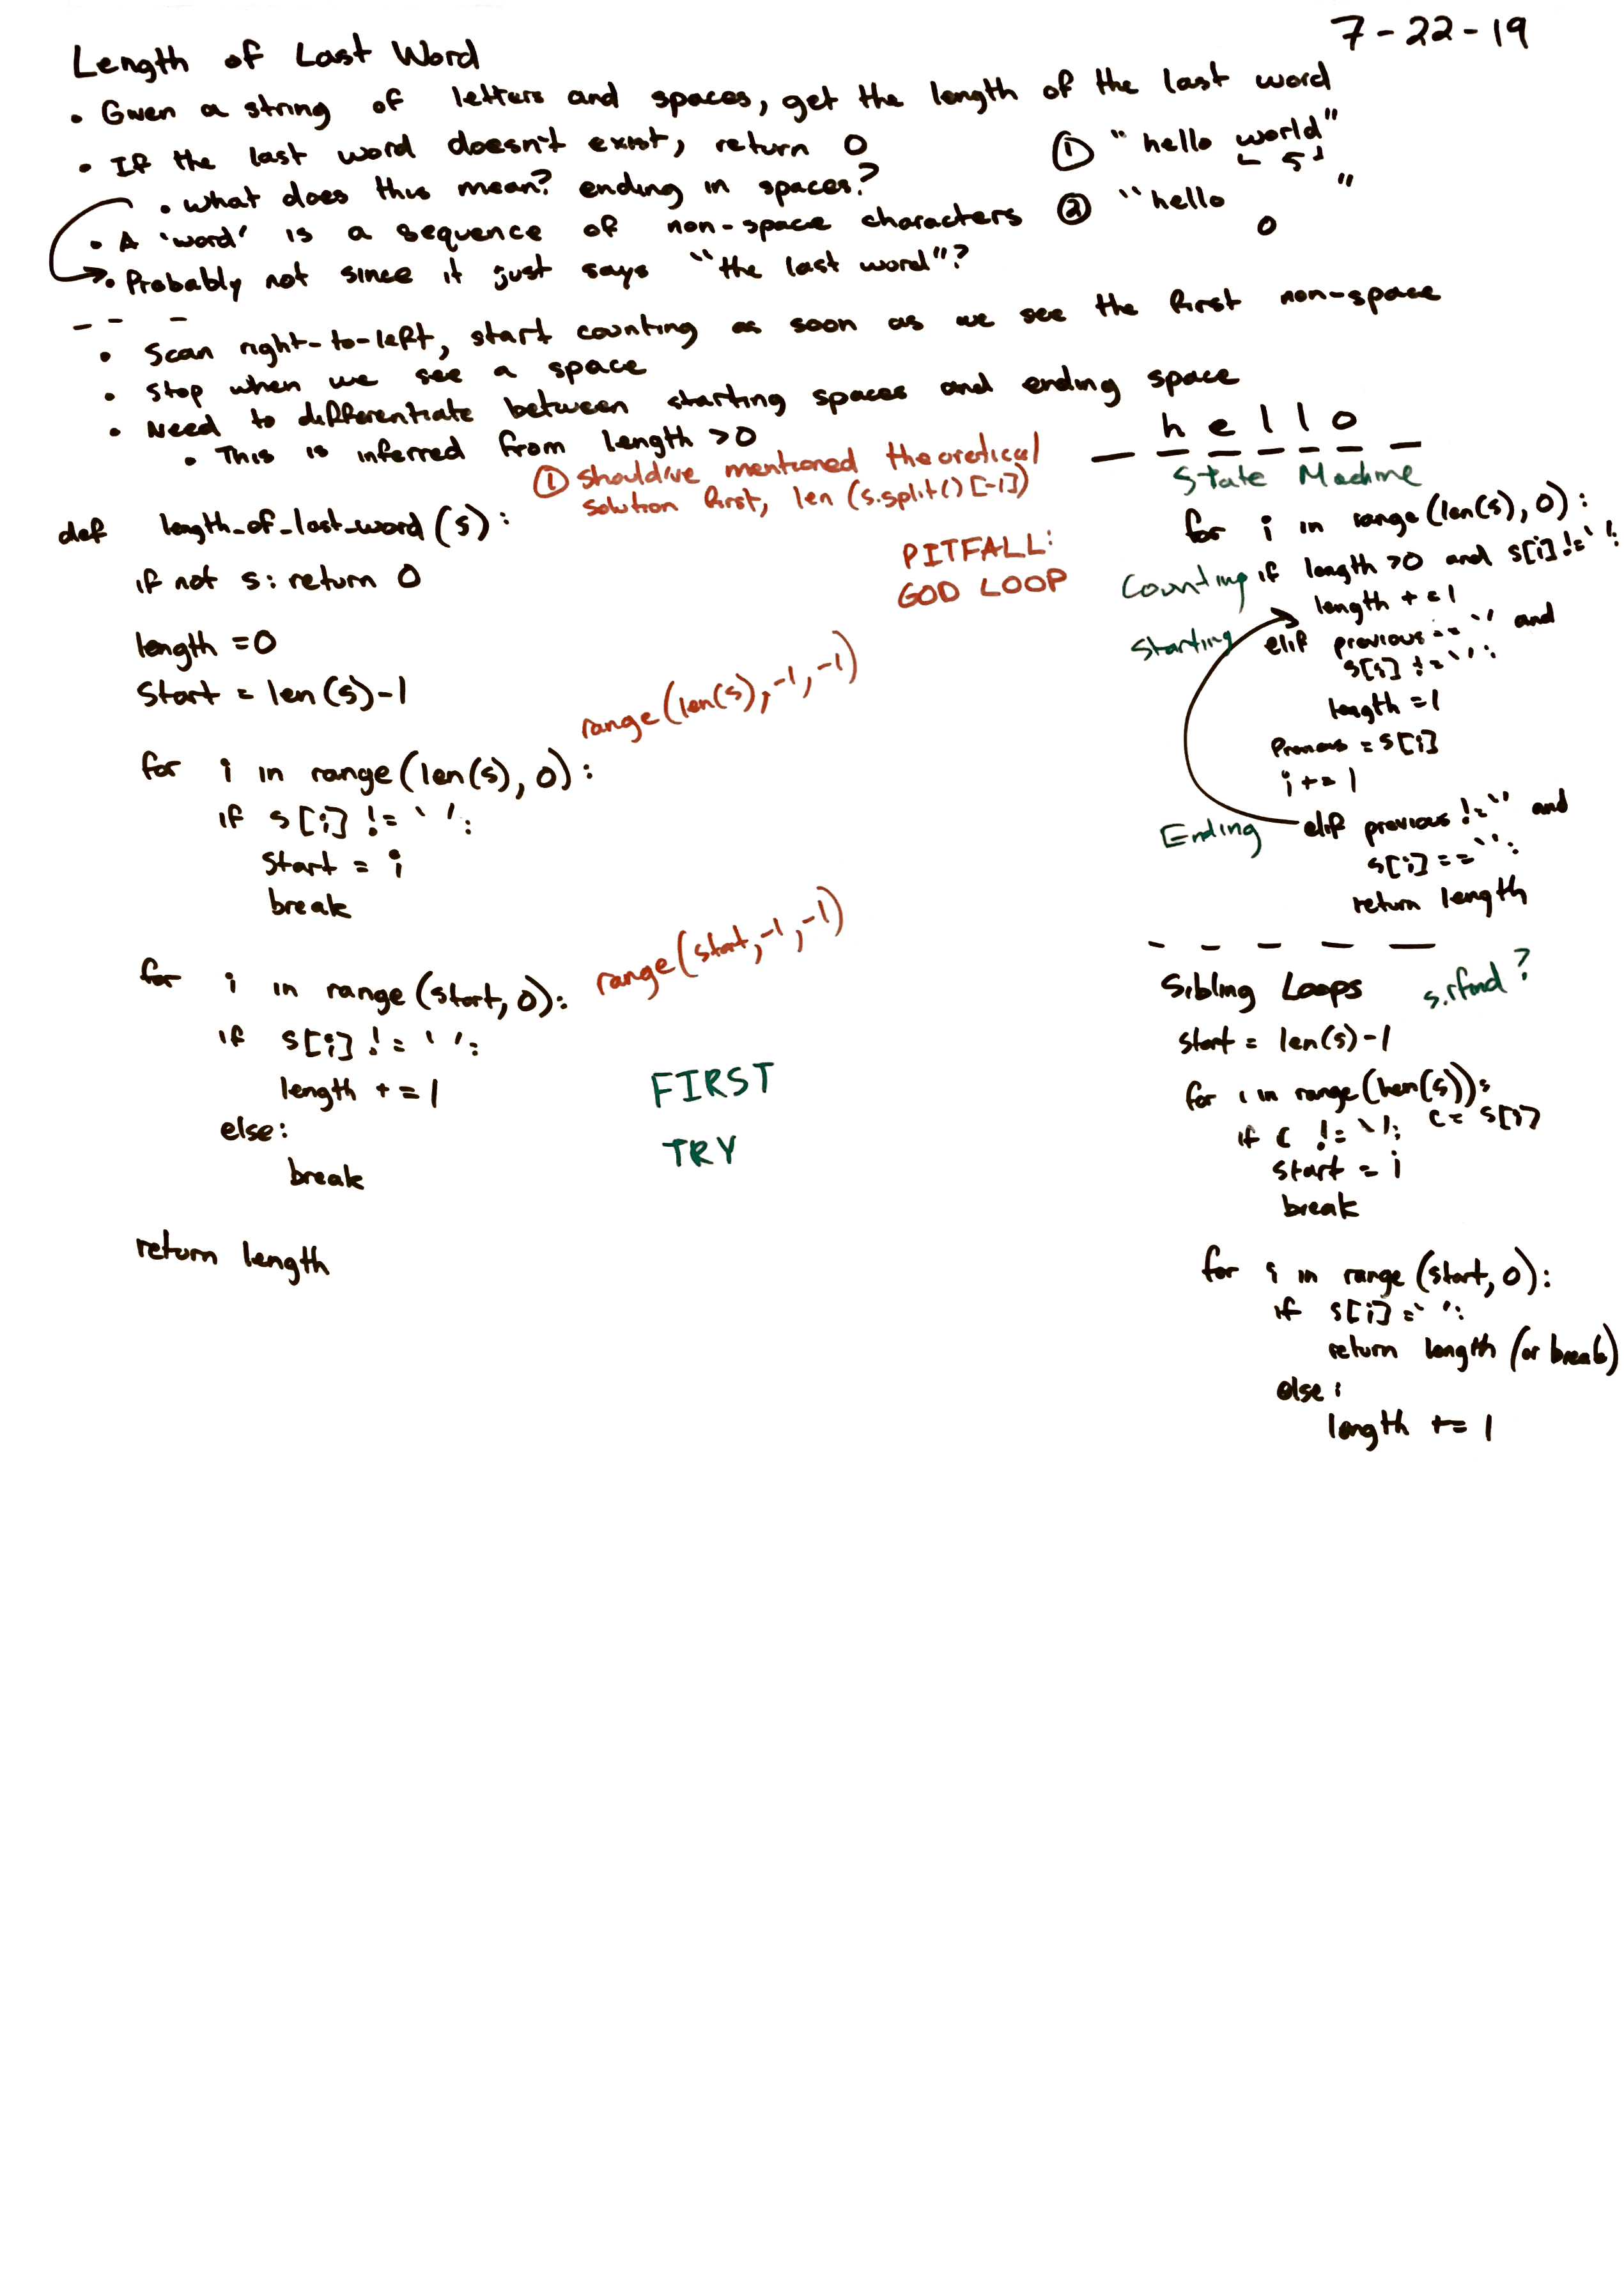 7-22-19
Length of Last Word
• Given a string of letters and spaces, get the length of the last word
• If the last word doesn't exist, return 0
• What does this mean? ending in spaces?
• A 'word' is a sequence of non-space characters
• Probably not since it just says "the last word"?
① "hello world"
5
② "hello "
0
• Scan right-to-left, start counting as soon as we see the first non-space
• Stop when we see a space
• Need to differentiate between starting spaces and ending space
• This is inferred from length >0
① should've mentioned theoretical
solution first, len (s.split()[-1])
def length_of_last_word(s):
if not s: return 0
length =0
Start = len(s)-1
for i in range(len(s), 0):
range(len(s), -1, -1)
if s[i] != ' ':
Start = i
break
for i in range(start, 0):
range(start, -1, -1)
if s[i] != ' ':
length += 1
else:
break
return length
FIRST
TRY
PITFALL:
GOD LOOP
h e l l o
State Machine
for i in range(len(s), 0):
Counting if length >0 and s[i] != ' ':
length +=1
Starting elif previous == ' ' and
s[i] != ' ':
length =1
Previous = s[i]
i += 1
Ending elif previous != ' ' and
s[i] == ' ':
return length
Sibling Loops
s.rfind?
start = len(s)-1
for i in range(len(s)):
c = s[i]
if c != ' ':
start = i
break
for i in range (start, 0):
if s[i] = ' ':
return length (or break)
else:
length += 1